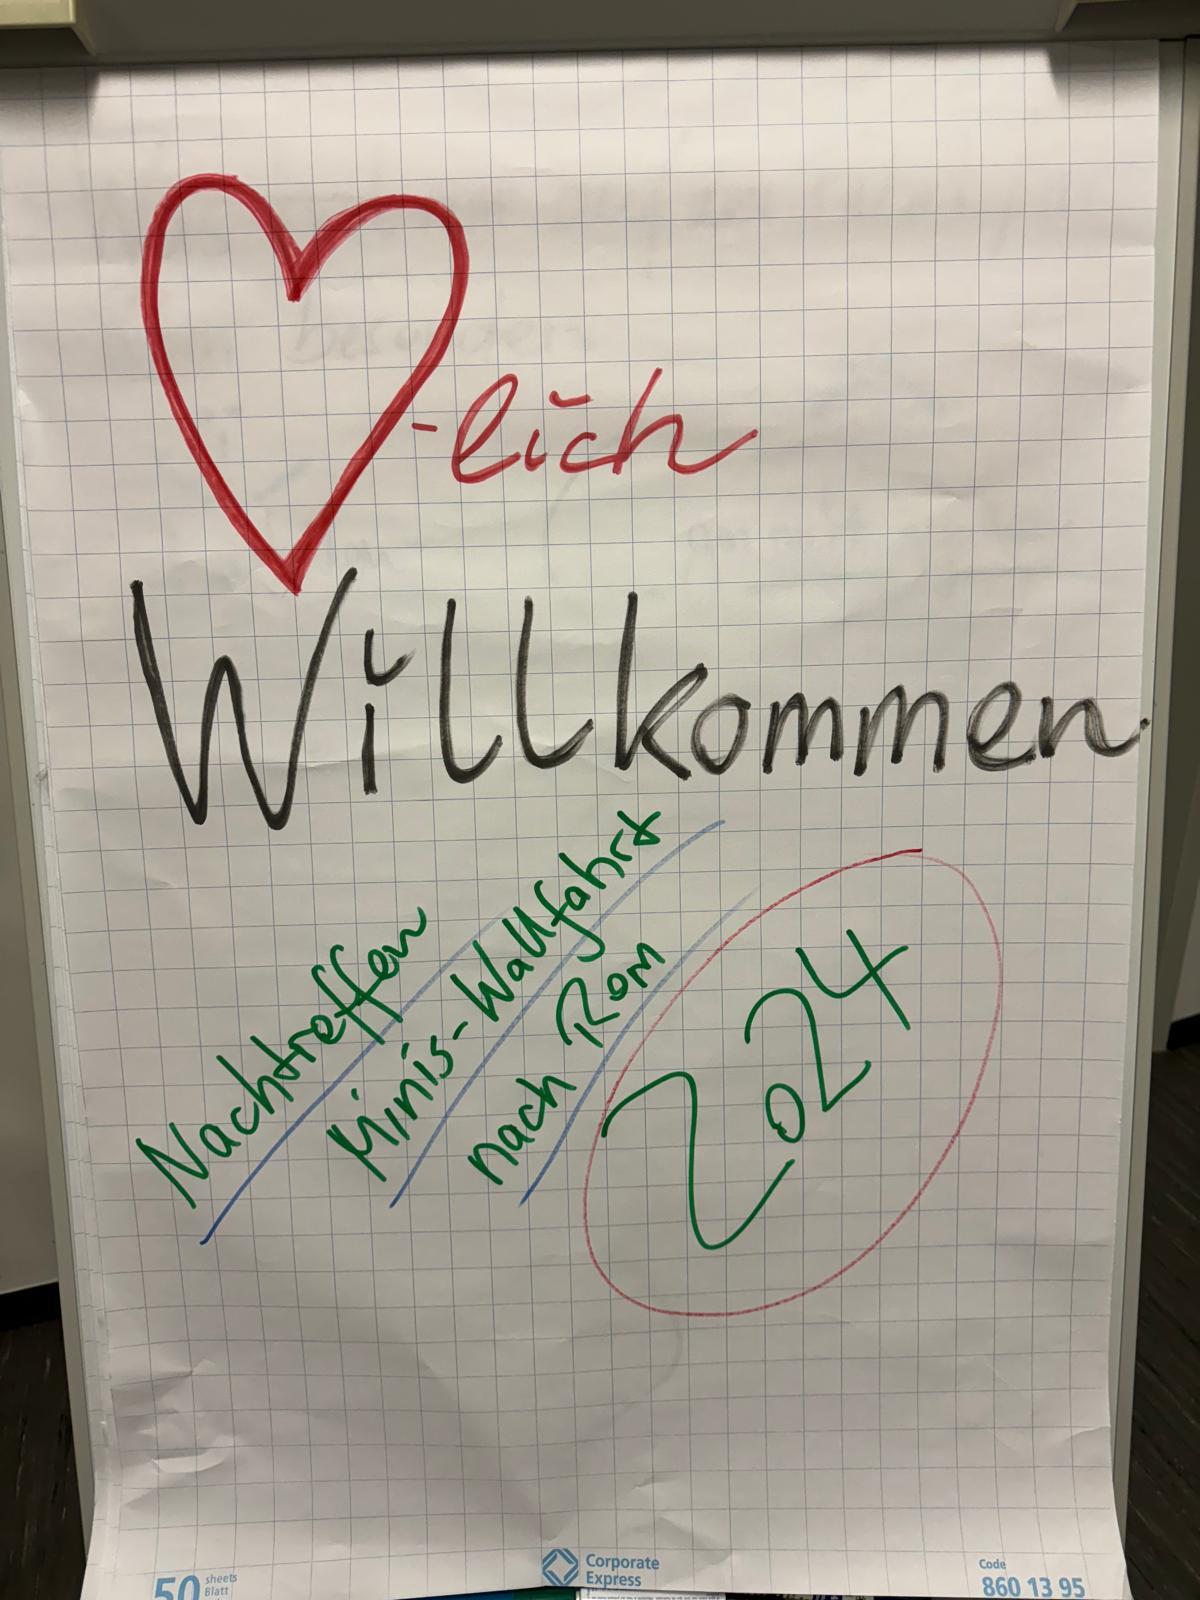 -lich
Willkommen
Nachtreffen
Minis-Wallfahrt
nach Rom
2024
50 sheets
Blatt
Corporate
Express
Code
860 13 95